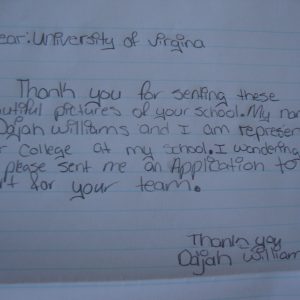 ear: University of Virgina
Thank you for senting these
utiful pictures of your school. My nam
Dajah Williams and I am represen
r College at my school. I wondering
please sent me an Application to
rt for your team.
Thank you
Dajah William